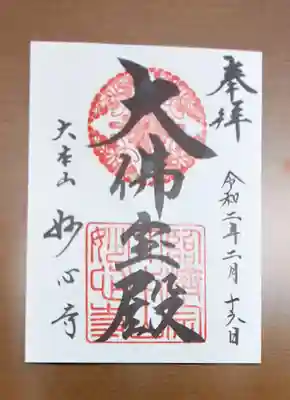 奉拝
令和二年二月十六日
大佛宝殿
大本山
妙心寺